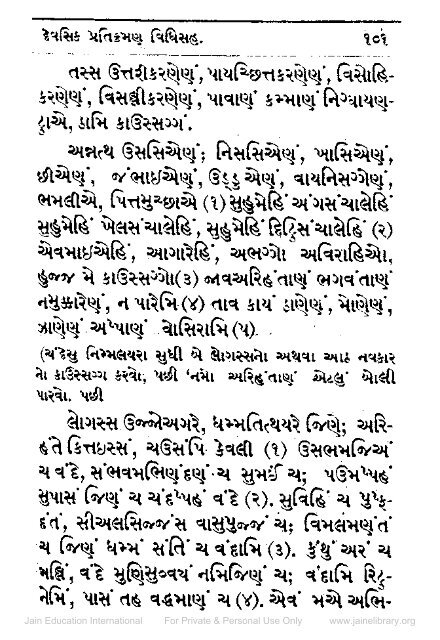 દેવસિક પ્રતિક્રમણ વિધિસહ. ૧૦૧
તસ્સ ઉત્તરીકરણેણં, પાયચ્છિત્તકરણેણં, વિસોહિ-
કરણેણં, વિસલ્લીકરણેણં, પાવાણં કમ્માણં નિગ્ઘાયણ-
ટ્ઠાએ, ઠામિ કાઉસ્સગ્ગં.
અન્નત્થ ઉસસિએણં; નિસસિએણં, ખાસિએણં,
છીએણં, જંભાઇએણં, ઉડ્ડુએણં, વાયનિસગ્ગેણં,
ભમલીએ, પિત્તમુચ્છાએ (૧) સુહુમેહિં અંગસંચાલેહિં
સુહુમેહિં ખેલસંચાલેહિં, સુહુમેહિં દિટ્ઠિસંચાલેહિં (૨)
એવમાઇએહિં, આગારેહિં, અભગ્ગો અવિરાહિઓ,
હુજ્જ મે કાઉસ્સગ્ગો(૩) જાવઅરિહંતાણં ભગવંતાણં
નમુક્કારેણં, ન પારેમિ (૪) તાવ કાયં ઠાણેણં, મોણેણં,
ઝાણેણં અપ્પાણં વોસિરામિ (૫).
(ચંદેસુ નિમ્મલયરા સુધી બે લોગસ્સનો અથવા આઠ નવકાર
નો કાઉસ્સગ્ગ કરવો, પછી ‘નમો અરિહંતાણં એટલું બોલી
પારવો, પછી
લોગસ્સ ઉજ્જોઅગરે, ધમ્મતિત્થયરે જિણે; અરિ-
હંતે કિત્તઇસ્સં, ચઉસંપિ કેવલી (૧) ઉસભમજિઅં
ચ વંદે, સંભવમભિણંદણં ચ સુમઈં ચ; પઉમપ્પહં
સુપાસં જિણં ચ ચંદપ્પહં વંદે (૨). સુવિહિં ચ પુપ્ફ-
દંતં, સીઅલસિજ્જંસ વાસુપુજ્જં ચ; વિમલમણંતં
ચ જિણં ધમ્મં સંતિં ચ વંદામિ (૩). કુંથું અરં ચ
મલ્લિં, વંદે મુણિસુવ્વયં નમિજિણં ચ; વંદામિ રિટ્ઠ-
નેમિં, પાસં તહ વદ્ધમાણં ચ (૪). એવં મએ અભિ-
Jain Education International For Private & Personal Use Only www.jainelibrary.org